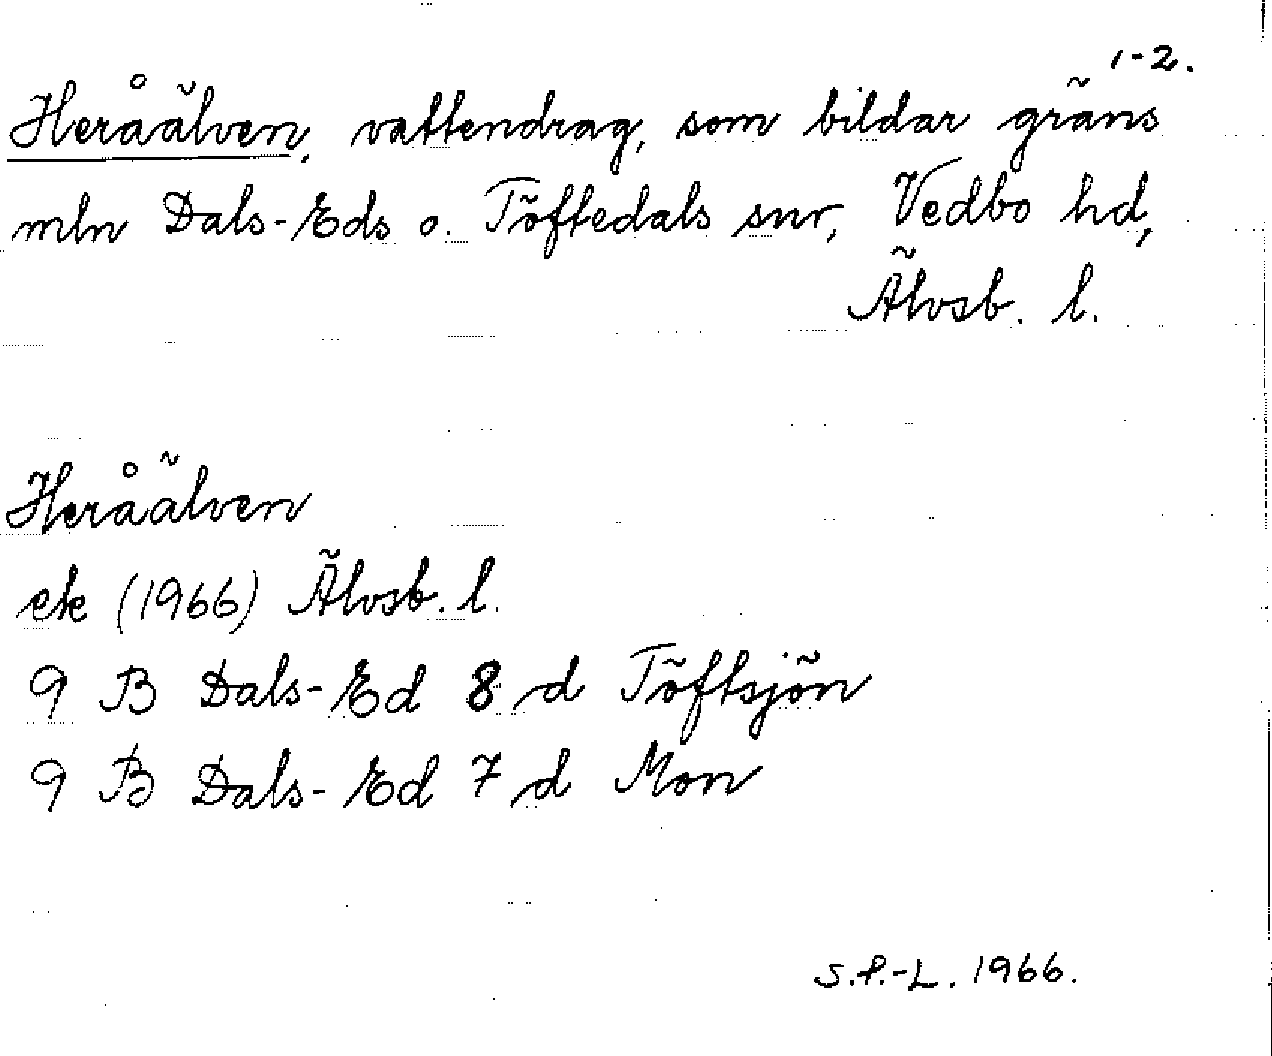 1-2.
Heråälven, vattendrag, som bildar gräns
mln Dals-Eds o. Töftedals snr, Vedbo hd,
Älvsb. l.
Heråälven
ek (1966) Älvsb. l.
9 B Dals-Ed 8 d Töftsjön
9 B Dals-Ed 7 d Mon
S.P.-L. 1966.